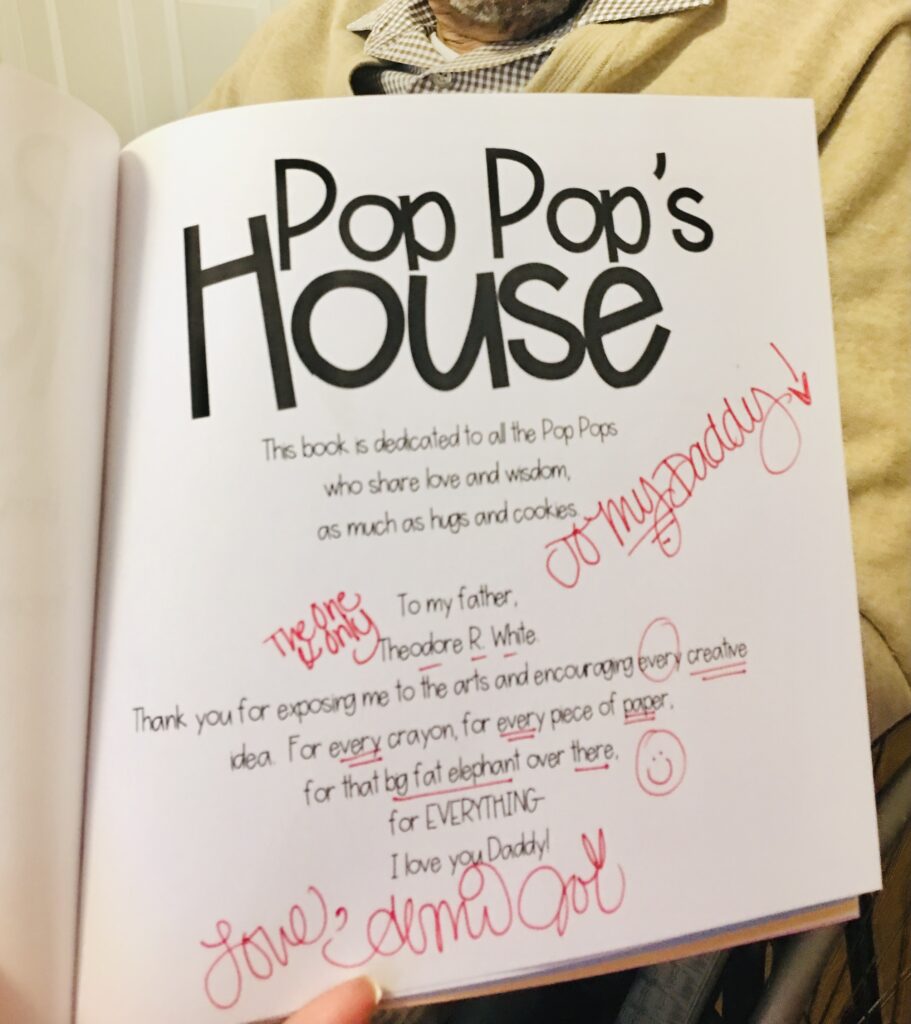 Pop Pop's
House
This book is dedicated to all the Pop Pops
who share love and wisdom,
as much as hugs and cookies.
To My Daddy
The one
& only
To my father,
Theodore R. White.
Thank you for exposing me to the arts and encouraging every creative
idea. For every crayon, for every piece of paper,
for that bg fat elephant over there,
for EVERYTHING-
I love you Daddy!
Love,